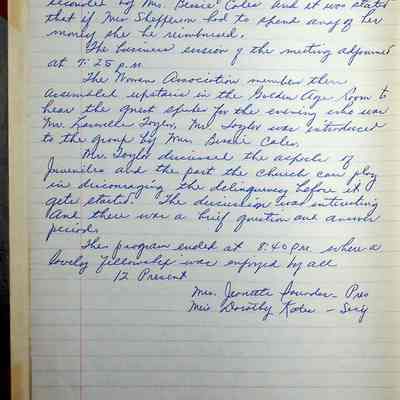 seconded by Mrs. Bessie Cales and it was stated
that if Miss Shefferson had to spend any of her
money she be reimbursed.
The business session of the meeting adjourned
at 7:25 p.m.
The Womens Association members then
assembled upstairs in the Golden Age Room to
hear the guest speaker for the evening who was
Mr. Taylor, Mr. Taylor was introduced
to the group by Mrs. Bessie Cales.
Mr. Taylor discussed the aspects of
Juveniles and the part the church can play
in discouraging the delinquency before it
gets started. The discussion was interesting
and there was a brief question and answer
period.
The program ended at 8:40 p.m. where a
lovely fellowship was enjoyed by all
12 Present
Mrs. Jeanette Saunders - Pres
Miss Dorothy Kates - Secy